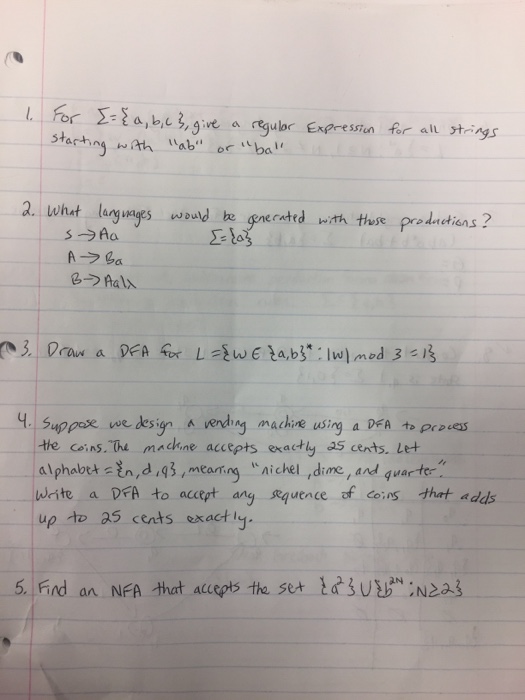 1. For Σ={a,b,c}, give a regular Expression for all strings
starting with "ab" or "ba"
2. What languages would be generated with these productions?
S→Aa Σ={a}
A→Ba
B→Aa|λ
3. Draw a DFA for L={w∈{a,b}*: |w| mod 3 = 1}
4. Suppose we design a vending machine using a DFA to process
the coins. The machine accepts exactly 25 cents. Let
alphabet = {n,d,q}, meaning "nichel, dime, and quarter".
Write a DFA to accept any sequence of coins that adds
up to 25 cents exactly.
5. Find an NFA that accepts the set {a²}∪{b²ᴺ: N≥2}